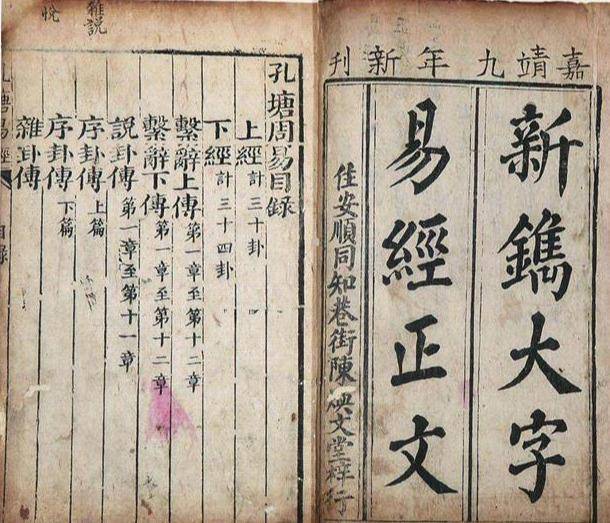 嘉靖九年新刊
新鐫大字
易經正文
住安順同知巷街陳 文堂梓行
孔塘周易目錄
上經計三十卦
下經計三十四卦
繫辭上傳第一章至第十二章
繫辭下傳第一章至第十二章
說卦傳第一章至第十一章
序卦傳上篇
序卦傳下篇
雜卦傳
孔塘易經 目錄
雜說